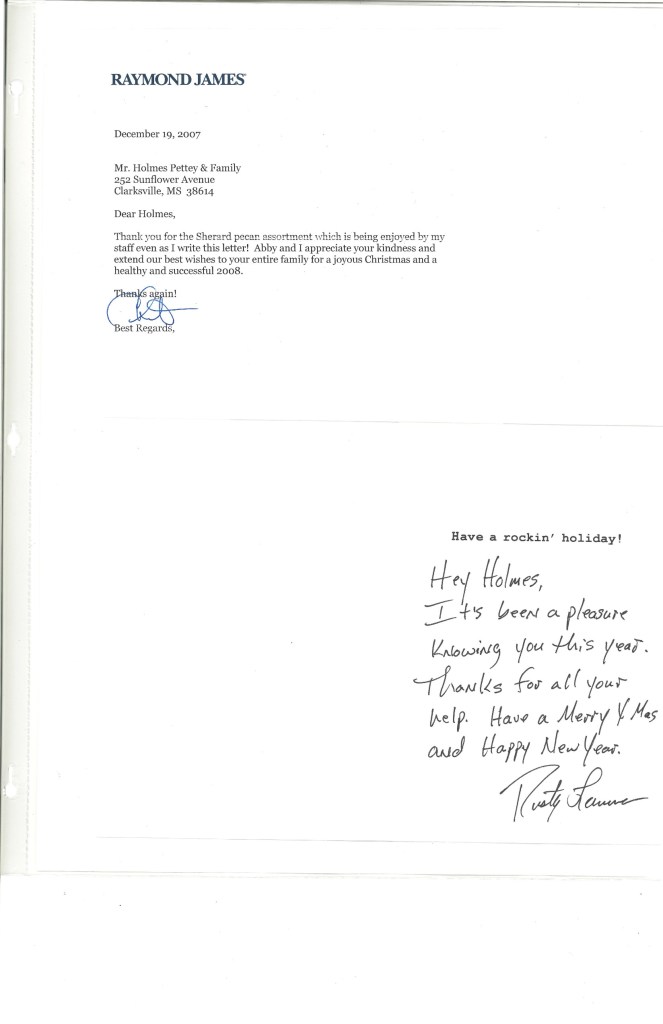 RAYMOND JAMES
December 19, 2007
Mr. Holmes Pettey & Family
252 Sunflower Avenue
Clarksville, MS 38614
Dear Holmes,
Thank you for the Sherard pecan assortment which is being enjoyed by my
staff even as I write this letter! Abby and I appreciate your kindness and
extend our best wishes to your entire family for a joyous Christmas and a
healthy and successful 2008.
Thanks again!
Best Regards,
Have a rockin' holiday!
Hey Holmes,
It's been a pleasure
knowing you this year.
Thanks for all your
help. Have a Merry X Mas
and Happy New Year.
Rusty